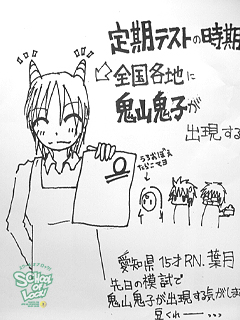 定期テストの時期
全国各地に
鬼山鬼子が
出現する
うろおぼえ
だなこてヨ
愛知県 15才 RN. 葉月
先日の模試で
鬼山鬼子が出現する気がしま
豆くれ――…
SCHOOL OF LOCK!